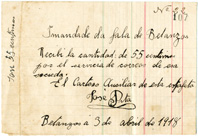 Nº 22
107
Irmandade da fala de Betanzos
Recibí la cantidad de 55 centimos
por el servicio de correos de esa
El Cartero Auxiliar de esta
José Pita
Betanzos a 3 de abril de 1918
Son 55 centimos